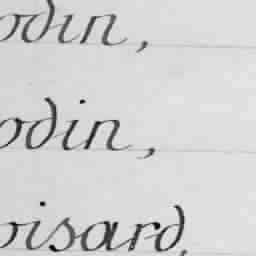 odin,
odin,
oisard,